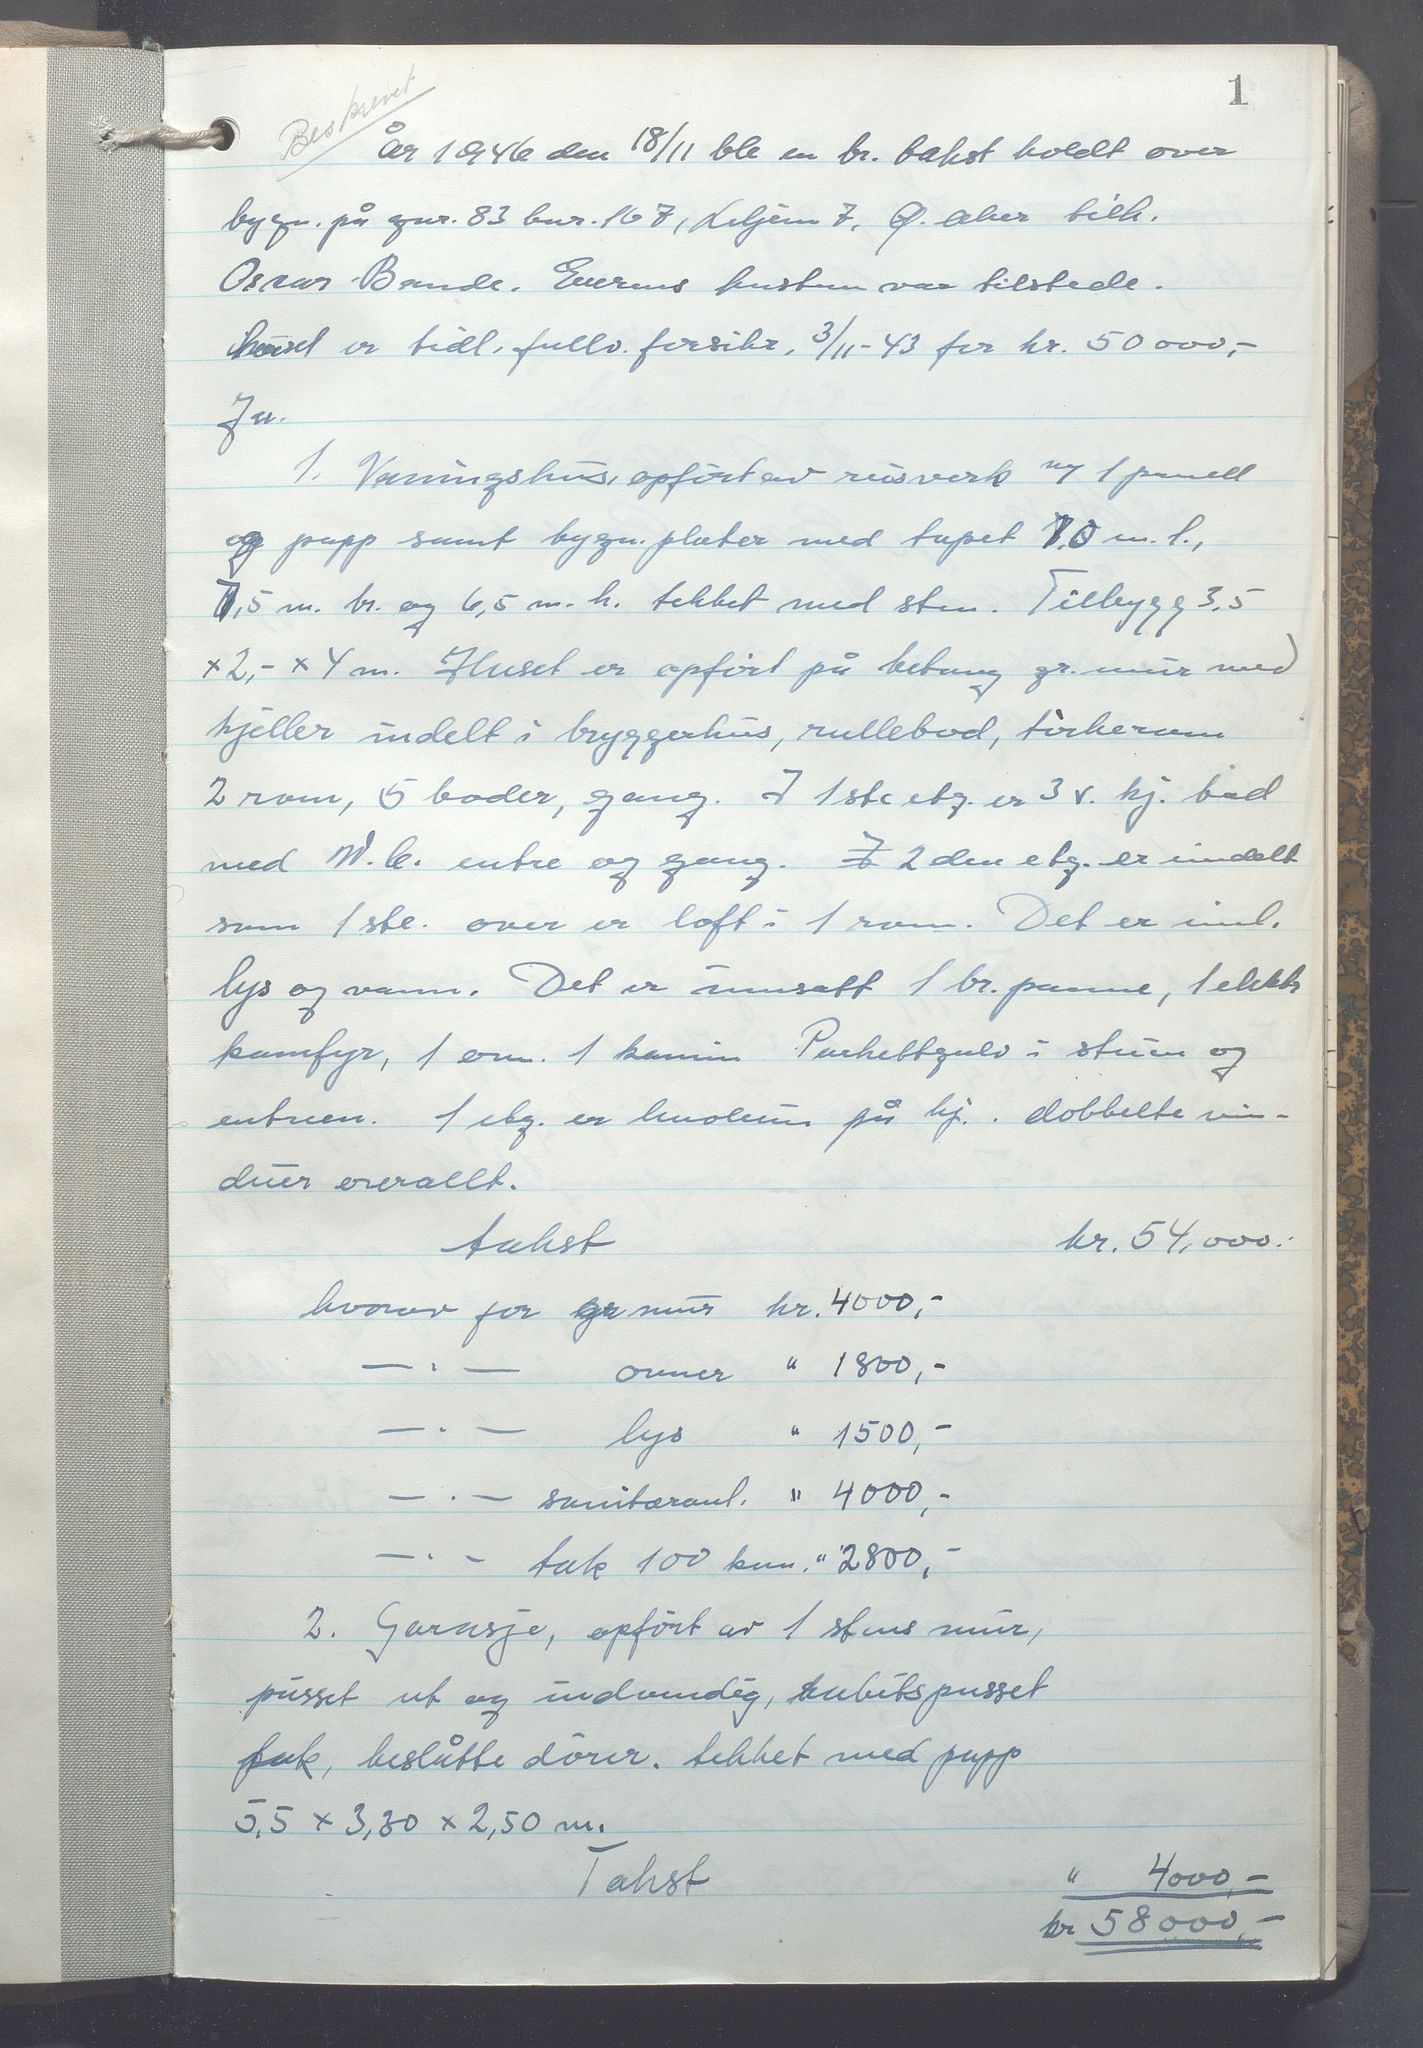 1
Beskrevet
År 1946 den 18/11 ble en br. takst holdt over
bygn. på gnr. 83 bnr. 167, 7. Ø. Aker tilh.
Oscar Bande. Eierens hustru var tilstede.
huset er tidl. fullv. forsikr. 3/11-43 for kr. 50 000,-
1. Vaningshus, opført av reisverk m/ 1 panell
og papp samt bygn. plater med tapet 7.0 m. l.,
7,5 m. br. og 6,5 m. h. tekket med sten. Tilbygg 3,5
x 2,- x 4 m. Huset er opført på betong gr. mur med
kjeller indelt i bryggerhus, rullebod, tørkerom
2 rom, 5 boder, gang. I 1ste etg. er 3 v. kj. bad
med W.C. entre og gang. 2 den etg. er inndelt
som 1 ste. over er loft i 1 rom. Det er innl.
lys og vann. Det er innsatt 1 br. panne, 1 elektr
komfyr, 1 ovn. 1 kamin Parkettgulv i stuen og
entreen. 1 etg. er linoleum på kj. . dobbelte vin-
duer overallt.
takst kr. 54,000.-
hvorav for gr mur kr. 4000,-
— " — ovner " 1800,-
— " — lys " 1500,-
— " — sanitæranl. " 4000,-
— " — tak 100 kvm. " 2800,-
2. Garasje, opført av 1 stens mur,
pusset ut og indvendig, rabitspusset
tak, beslåtte dører. tekket med papp
5,5 x 3,30 x 2,50 m.
Takst " 4000,-
kr 58 000,-